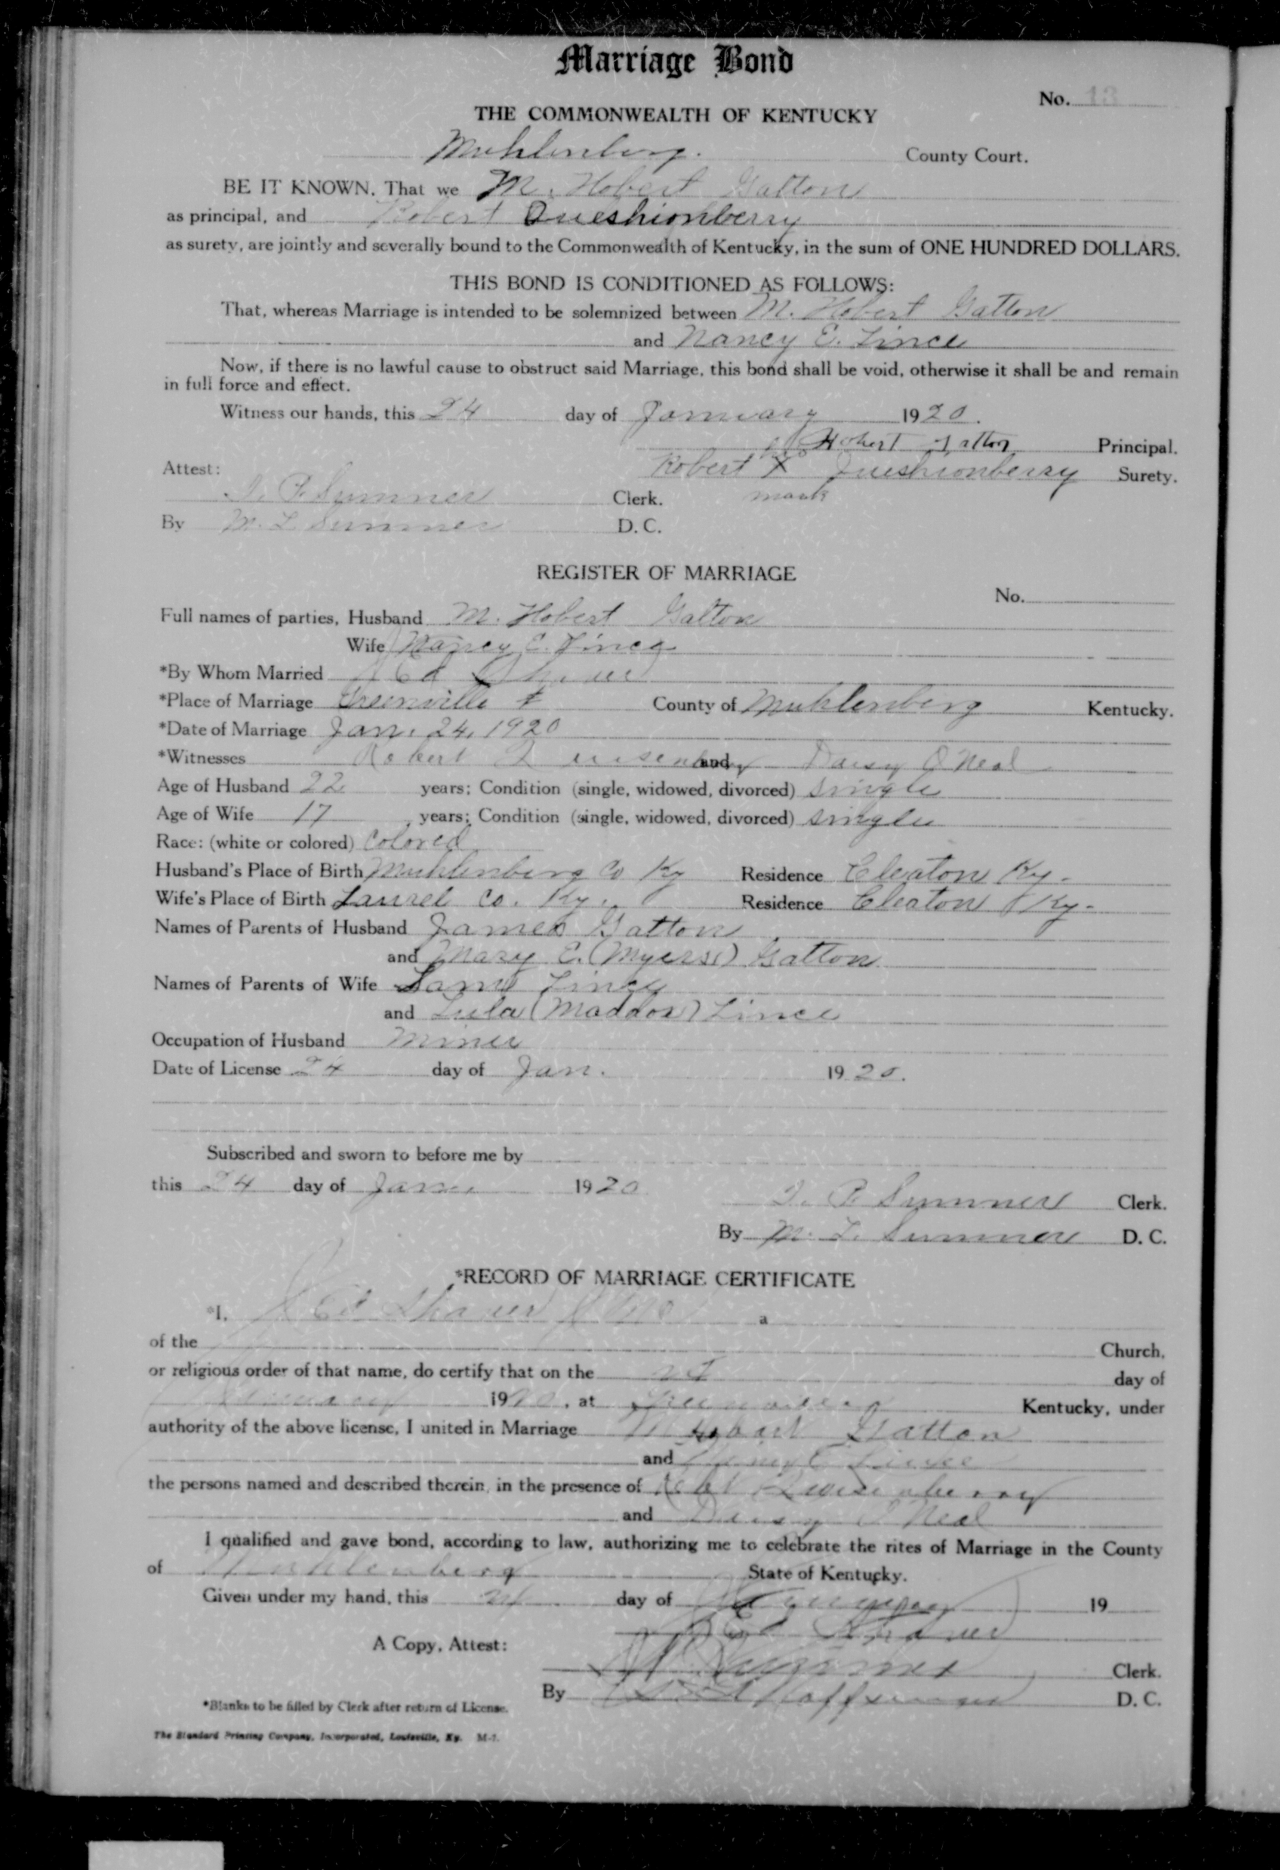 Marriage Bond
No. 13
THE COMMONWEALTH OF KENTUCKY
Muhlenberg. County Court.
BE IT KNOWN, That we M. Hobert Gatton
as principal, and Robert Queshionberry
as surety, are jointly and severally bound to the Commonwealth of Kentucky, in the sum of ONE HUNDRED DOLLARS.
THIS BOND IS CONDITIONED AS FOLLOWS:
That, whereas Marriage is intended to be solemnized between M. Hobert Gatton
and Nancy E. Lince
Now, if there is no lawful cause to obstruct said Marriage, this bond shall be void, otherwise it shall be and remain
in full force and effect.
Witness our hands, this 24 day of January 1920.
Hobert Gatton Principal.
Attest: Robert X Queshionberry Surety.
Sumner Clerk. mark
By M. L. Sumner D. C.
REGISTER OF MARRIAGE
No.
Full names of parties, Husband M. Hobert Gatton
Wife Nancy E. Lince
*By Whom Married J Ed Shaver
*Place of Marriage Greenville County of Muhlenberg Kentucky.
*Date of Marriage Jan. 24, 1920
*Witnesses Robert Quisenberry and Daisy O Neal
Age of Husband 22 years; Condition (single, widowed, divorced) single
Age of Wife 17 years; Condition (single, widowed, divorced) single
Race: (white or colored) Colored
Husband's Place of Birth Muhlenberg Co Ky Residence Cleaton Ky.
Wife's Place of Birth Laurel Co. Ky. Residence Cleaton Ky.
Names of Parents of Husband James Gatton
and Mary E. (Myers) Gatton
Names of Parents of Wife Sam Lince
and Lula (Maddox) Lince
Occupation of Husband Miner
Date of License 24 day of Jan. 1920.
Subscribed and sworn to before me by
this 24 day of Jan 1920
Sumner Clerk.
By M. L. Sumner D. C.
*RECORD OF MARRIAGE CERTIFICATE
*I, J Ed Shaver a
of the Church,
or religious order of that name, do certify that on the 24 day of
January 1920, at Kentucky, under
authority of the above license, I united in Marriage M Hobart Gatton
and Nancy E Lince
the persons named and described therein, in the presence of Robt Quisenberry
and Daisy O Neal
I qualified and gave bond, according to law, authorizing me to celebrate the rites of Marriage in the County
of Muhlenberg State of Kentucky.
Given under my hand, this 24 day of January 19
J Ed Shaver
A Copy, Attest:
Sumner Clerk.
By D. C.
*Blanks to be filled by Clerk after return of License.
The Standard Printing Company, Incorporated, Louisville, Ky. M-7.